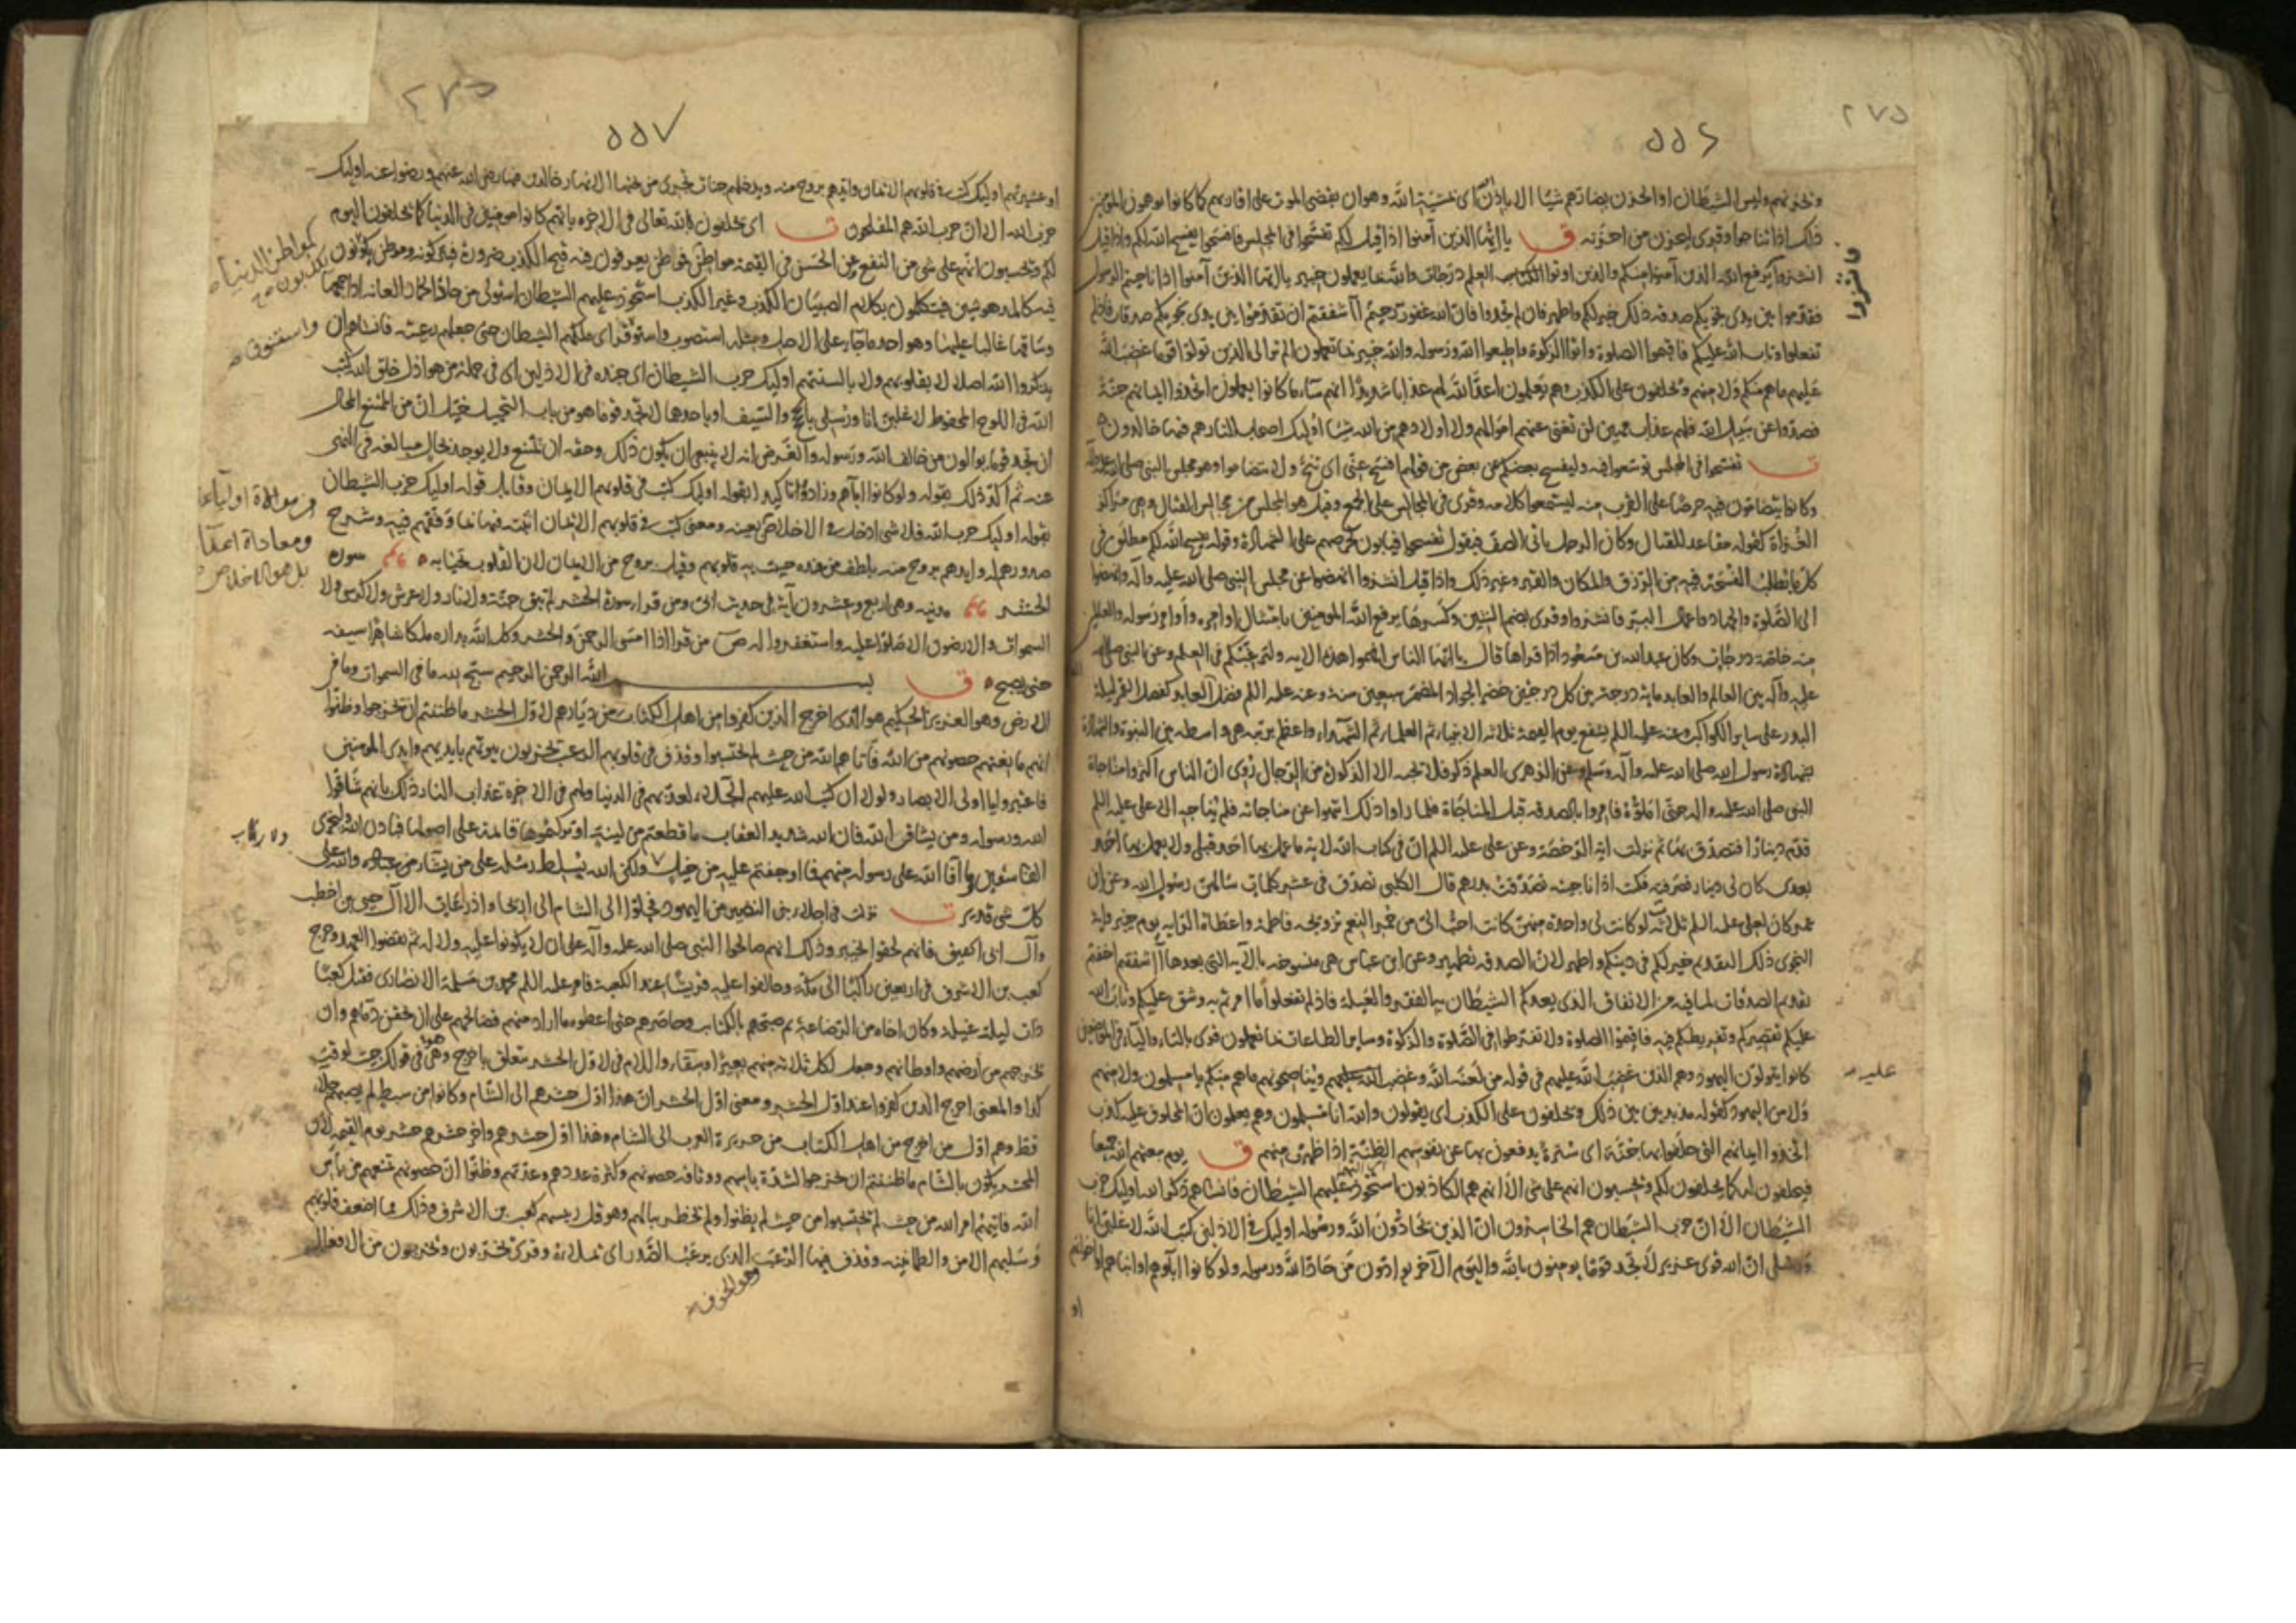 ٥٥٤
٢٧٥
ويحزنهم وليس الشيطان او الحزن بضارهم شيئا الا باذن الله اى بمشية الله وهو ان يقضى الموت على اقاربهم كما كانوا يوهمون المؤمنين
ذلك اذا تناجوا وقرى ليحزن من احزنه ق يا ايها الذين آمنوا اذا قيل لكم تفسحوا فى المجلس فافسحوا يفسح الله لكم واذا قيل
انشزوا يرفع الله الذين آمنوا منكم والذين اوتوا العلم درجات والله بما يعملون خبير يا ايها الذين آمنوا اذا ناجيتم الرسول
فانشزوا
فقدموا بين يدى نجويكم صدقه ذلك خير لكم واطهر فان لم تجدوا فان الله غفور رحيم أاشفقتم ان تقدموا بين يدى نجويكم صدقات فاذ لم
تفعلوا وتاب الله عليكم فاقيموا الصلوة واتوا الزكوة واطيعوا الله ورسوله والله خبير بما تعملون الم تر الى الذين تولوا قوما غضب الله
عليهم ما هم منكم ولا منهم ويحلفون على الكذب وهم يعلمون اعد الله لهم عذابا شديدا انهم ساء ما كانوا يعملون اتخذوا ايمانهم جنة
فصدوا عن سبيل الله فلهم عذاب مهين لن تغنى عنهم اموالهم ولا اولادهم من الله شيئا اوليك اصحاب النار هم فيها خالدون ه
ت تفسحوا فى المجلس توسعوا فيه وليفسح بعضكم عن بعض من قولهم افسح عنى اى تنح ولا تتضاموا وهو مجلس النبى صلى الله عليه وآله
وكانوا يتضامون فيه حرصا على القرب منه ليستمعوا كلامه وقرى فى المجالس على الجمع وقيل هو المجلس من مجالس القتال وهى مراكز
الغزاة كقوله مقاعد للقتال وكان الرجل ياتى الصف فيقول تفسحوا فيابون لحرصهم على الشهادة وقوله يفسح الله لكم مطلق فى
كل ما يطلب الفسحة فيه من الرزق والمكان والقبر وغير ذلك واذا قيل انشزوا انهضوا عن مجلس النبى صلى الله عليه وآله وانهضوا
الى الصلوة والجهاد واعمال البر فانشزوا وقرى بضم الشين وكسرها يرفع الله المؤمنين بامتثال اوامره واوامر رسوله والعالمين
منهم خاصة درجات وكان عبد الله بن مسعود اذا قراها قال يا ايها الناس افهموا هذه الايه ولترغبكم فى العلم وعن النبى صلى الله
عليه وآله بين العالم والعابد مايه درجة بين كل درجتين حضر الجواد المضمر سبعين سنة وعنه عليه السلم فضل العالم على العابد كفضل القمر ليلة
البدر على ساير الكواكب وعنه عليه السلم يشفع يوم القيمة ثلاثه الانبياء ثم العلماء ثم الشهداء واعظم بمرتبه هى واسطه بين النبوة والشهادة
بشهادة رسول الله صلى الله عليه وآله وسلم وعن الزهرى العلم ذكر فلا يحبه الا الذكورة من الرجال روى ان الناس اكثروا مناجاة
النبى صلى الله عليه وآله حتى املوه فامروا بالصدقه قبل المناجاة فلما راوا ذلك انتهوا عن مناجاته فلم يناجه الا على عليه السلم
قدم دينارا فتصدق به ثم نزلت اية الرخصة وعن على عليه السلم ان فى كتاب الله لاية ما عمل بها احد قبلى ولا يعمل بها احد
بعدى كان لى دينار فصرفته فكنت اذا ناجيته تصدقت بدرهم قال الكلبى تصدق فى عشر كلمات سالهن رسول الله وعن ابن
عمر كان لعلى عليه السلم ثلاث لو كانت لى واحدة منهن كانت احب الى من حمر النعم تزويجه فاطمة واعطاه الرايه يوم خيبر واية
النجوى ذلك التقديم خير لكم فى دينكم واطهر لان الصدقه تطهير وعن ابن عباس هى منسوخه بالآية التى بعدها أاشفقتم اخفتم
تقديم الصدقات لما فيه من الانفاق الذى يعدكم الشيطان به الفقر والعيلة فاذ لم تفعلوا ما امرتم به وشق عليكم وتاب الله
عليكم تقصيركم وتفريطكم فيه فاقيموا الصلوة ولا تفرطوا فى الصلوة والزكوة وساير الطاعات بما تعملون قرى بالتاء والياء
كانوا يتولون اليهود وهم الذين غضب الله عليهم فى قوله من لعنه الله وغضب عليه ويناصحونهم ما هم منكم يا مسلمون ولا منهم
عليه
ولا من اليهود كقوله مذبذبين بين ذلك ويحلفون على الكذب اى يقولون والله انا مسلمون وهم يعلمون ان المحلوف عليه كذب
اتخذوا ايمانهم التى حلفوا بها جنة اى سترة يدفعون بها عن نفوسهم الظنة اذا ظهرت منهم ق يوم يبعثهم الله جميعا
فيحلفون له كما يحلفون لكم ويحسبون انهم على شى الا انهم هم الكاذبون استحوذ عليهم الشيطان فانساهم ذكر الله اوليك حزب
الشيطان الا ان حزب الشيطان هم الخاسرون ان الذين يحادون الله ورسوله اوليك فى الاذلين كتب الله لاغلبن انا
ورسلى ان الله قوى عزيز لا تجد قوما يومنون بالله واليوم الآخر يوادون من حاد الله ورسوله ولو كانوا آباءهم او ابناءهم او اخوانهم
او
٢٧٥
٥٥٧
او عشيرتهم اوليك كتب فى قلوبهم الايمان وايدهم بروح منه ويدخلهم جنات تجرى من تحتها الانهار خالدين فيها رضى الله عنهم ورضوا عنه اوليك
حزب الله الا ان حزب الله هم المفلحون ت اى يحلفون بالله تعالى فى الاخره بانهم كانوا مومنين فى الدنيا كما يحلفون اليوم
لكم ويحسبون انهم على شى من النفع وعن الحسن فى القيمة مواطن فموطن يعرفون فيه قبح الكذب ضرورة فيتركونه وموطن يكونون
كمواطن الدنيا
يكذبون
فيه كالمدهوشين فيتكلمون بكلام الصبيان الكذب وغير الكذب استحوذ عليهم الشيطان استولى من حاذ الحمار العانه اذا جمعها
وساقها غالبا عليها وهو احد ما جاء على الاصل ومثله استصوب واستنوق اى ملكهم الشيطان حتى جعلهم رعيته فانساهم ان
واستنوق
يذكروا الله اصلا لا بقلوبهم ولا بالسنتهم اوليك حزب الشيطان اى جنده فى الاذلين اى فى جملة من هو اذل خلق الله كتب
الله فى اللوح المحفوظ لاغلبن انا ورسلى بالحجة والسيف او باحدهما لا تجد قوما هو من باب التخييل خيل ان من الممتنع المحال
ان تجد قوما يوالون من خالف الله ورسوله والغرض انه لا ينبغى ان يكون ذلك وحقه ان يمتنع ولا يوجد بحال مبالغه فى النهى
عنه ثم اكد ذلك بقوله ولو كانوا آباءهم وزاده تاكيدا بقوله اوليك كتب فى قلوبهم الايمان وقابل قوله اوليك حزب الشيطان
بقوله اوليك حزب الله فلا شى ادخل فى الاخلاص بعينه ومعنى كتب فى قلوبهم الايمان اثبته فيها بما وفقهم فيه وشرح
من موالاة اولياء
ومعاداة اعداء
بل هو الاخلاص
صدورهم له وايدهم بروح منه بلطف من عنده حييت به قلوبهم وقيل بروح من الايمان لان القلوب تحيا به ه سورة
الحشر مدنيه وهى اربع وعشرون آية فى حديث ابى ومن قرا سورة الحشر لم يبق جنة ولا نار ولا عرش ولا كرسى ولا
السموات والارضون الا صلوا عليه واستغفروا له ص من قرا اذا امسى الرحمن والحشر وكل الله بداره ملكا شاهرا سيفه
حتى يصبح ه ق بسم الله الرحمن الرحيم سبح لله ما فى السموات وما فى
الارض وهو العزيز الحكيم هو الذى اخرج الذين كفروا من اهل الكتاب من ديارهم لاول الحشر ما ظننتم ان يخرجوا وظنوا
انهم مانعتهم حصونهم من الله فاتاهم الله من حيث لم يحتسبوا وقذف فى قلوبهم الرعب يخربون بيوتهم بايديهم وايدى المومنين
فاعتبروا يا اولى الابصار ولولا ان كتب الله عليهم الجلاء لعذبهم فى الدنيا ولهم فى الاخرة عذاب النار ذلك بانهم شاقوا
الله ورسوله ومن يشاق الله فان الله شديد العقاب ما قطعتم من لينة او تركتموها قايمة على اصولها فباذن الله وليخزى
الفاسقين وما افاء الله على رسوله منهم فما اوجفتم عليه من خيل ولكن الله يسلط رسله على من يشاء والله على
ولا ركاب
كل شى قدير ت نزلت فى اجلاء بنى النضير من اليهود فجلوا الى الشام الى اريحا واذرعات الا آل حيى بن اخطب
وآل ابى الحقيق فانهم لحقوا بخيبر وذلك انهم صالحوا النبى صلى الله عليه وآله على ان لا يكونوا عليه ولا له ثم نقضوا العهد وخرج
كعب بن الاشرف فى اربعين راكبا الى مكة وحالفوا عليه قريشا عند الكعبة فامر عليه السلم محمد بن مسلمة الانصارى فقتل كعبا
ذات ليلة غيلة وكان اخاه من الرضاعة ثم صبحهم بالكتايب وحاصرهم حتى اعطوه ما اراد منهم فصالحهم على ان يحقن دماهم وان
يخرجهم من ارضهم واوطانهم وجعل لكل ثلاثة منهم بعيرا وسقاء واللام فى لاول الحشر تتعلق باخرج وهى فى قولك جيت لوقت
كذا والمعنى اخرج الذين كفروا عند اول الحشر ومعنى اول الحشر ان هذا اول حشرهم الى الشام وكانوا من سبط لم يصبهم جلاء
قط وهم اول من اخرج من اهل الكتاب من جزيرة العرب الى الشام وهذا اول حشرهم واخر حشرهم حشر يوم القيمة لان
المحشر يكون بالشام ما ظننتم ان يخرجوا لشدة باسهم ووثاقه حصونهم وكثرة عددهم وعدتهم وظنوا ان حصونهم تمنعهم من باس
الله فاتيهم امر الله من حيث لم يحتسبوا من حيث لم يظنوا ولم يخطر ببالهم وهو قتل رييسهم كعب بن الاشرف وذلك مما اضعف قلوبهم
وسلبهم الامن والطمانينه وقذف فيها الرعب الذى يرعب الصدر اى يملاه وقرى يخربون ويخربون من الافعال
وهو الخوف